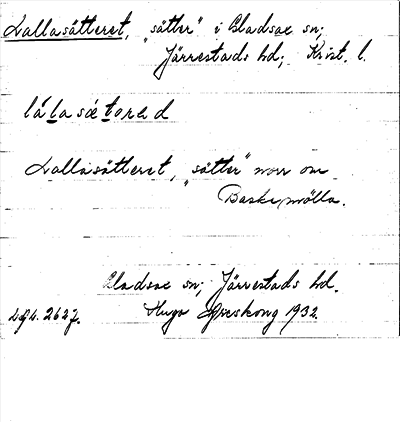 Lallasätteret, "sätter" i Gladsax sn;
Järrestads hd; Krist. l.
lálasætored
Lallasätteret, "sätter" norr om
Baskemölla.
Gladsax sn; Järrestads hd.
Hugo Areskoug 1932.